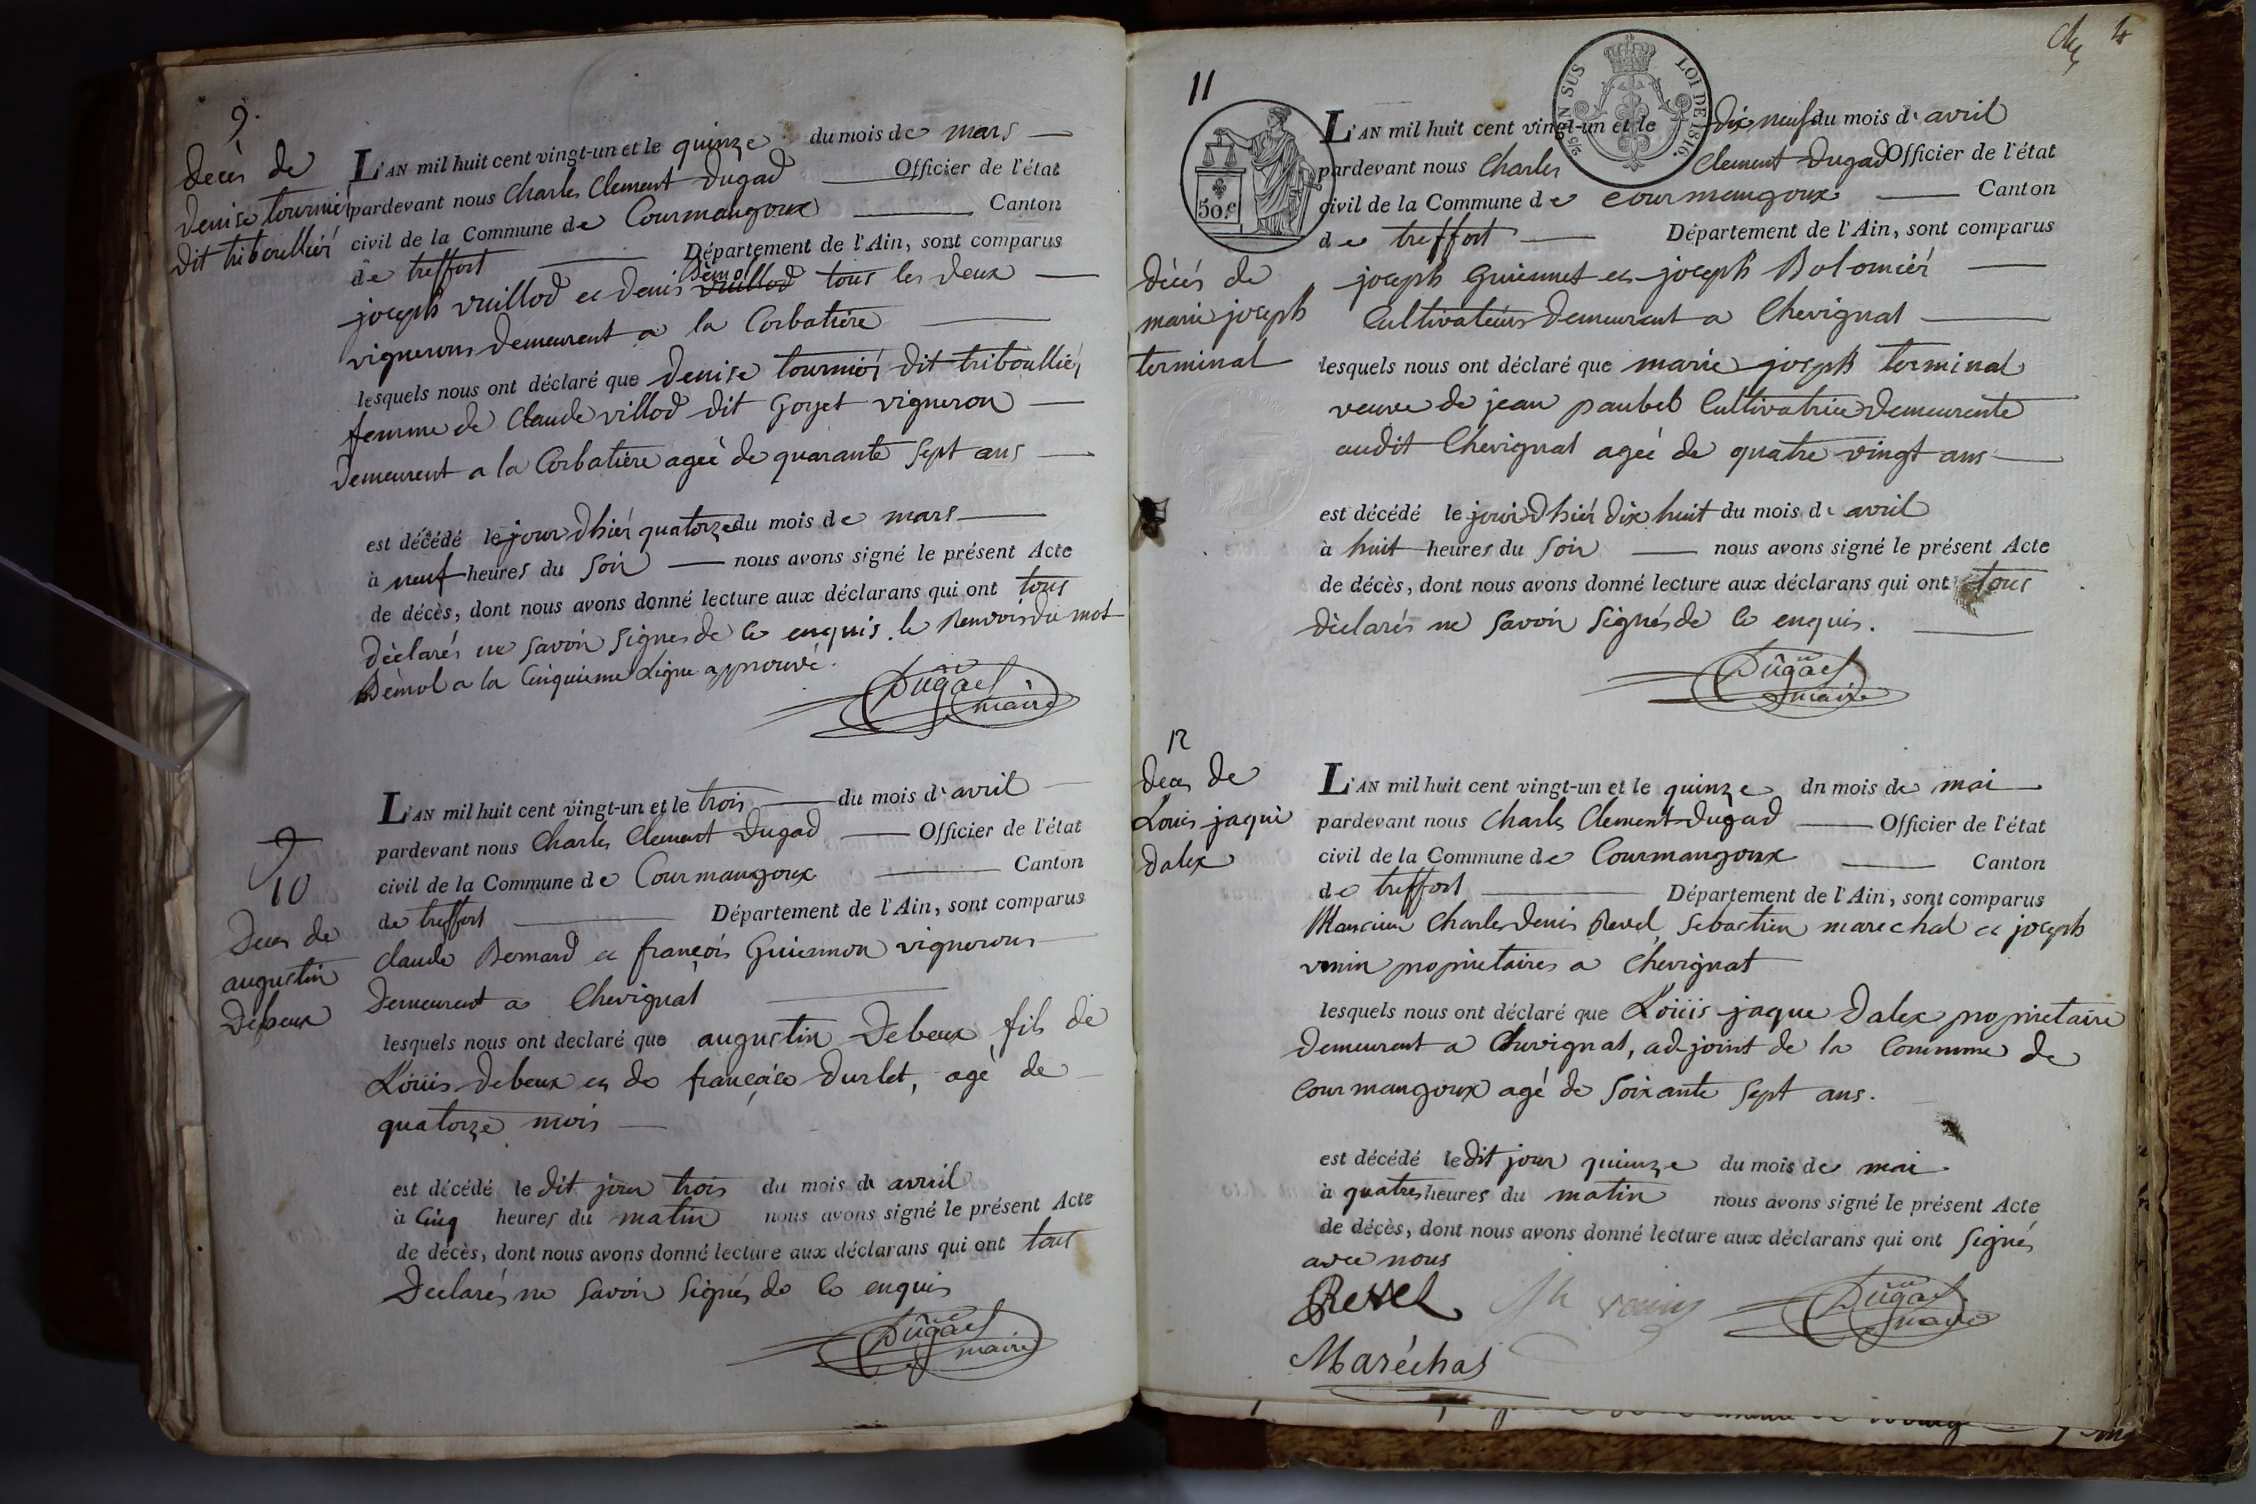 9.
décès de
denise tournier
dit triboullier
L'AN mil huit cent vingt-un et le quinze du mois de mars
pardevant nous Charles Clement Dugad Officier de l'état
civil de la Commune de Courmangoux Canton
de treffort Département de l'Ain, sont comparus
Démol
joseph vuillod et denis vuillod tous les deux
vignerons demeurent a la Corbatière
lesquels nous ont déclaré que denise tournier dit triboullier
femme de Claude villod dit Goyet vigneron
demeurent a la Corbatière ageé de quarante sept ans
est décédé le jour d'hiér quatorze du mois de mars
à neuf heures du soir nous avons signé le présent Acte
de décès, dont nous avons donné lecture aux déclarans qui ont tous
déclarés ne savoir signés de ce enquis. le Renvois du mot
Démol a la Cinquieme Ligne approuvé.
Dugad
maire
9
10
Deces de
augustin
Debeux
L'AN mil huit cent vingt-un et le trois du mois d'avril
pardevant nous Charles Clement Dugad Officier de l'état
civil de la Commune de Courmangoux Canton
de treffort Département de l'Ain, sont comparus
claude Bernard et françois Guiennon vignerons
demeurent a Chevignat
lesquels nous ont declaré que augustin Debeux fils de
Loüis debeux et de françoise durlet, agé de
quatorze mois
est décédé le dit jour trois du mois de avril
à Cinq heures du matin nous avons signé le présent Acte
de décès, dont nous avons donné lecture aux déclarans qui ont tous
Declarés ne savoir signés de ce enquis
Dugad
maire
4
11
TIMBRE EN SUS
LOI DE 1816.
50.c
L'AN mil huit cent vingt-un et le dix neuf du mois d'avril
pardevant nous Charles Clement Dugad Officier de l'état
civil de la Commune de courmangoux Canton
de treffort Département de l'Ain, sont comparus
décés de
marie joseph
terminal
joseph Guiennet et joseph Bolomiér
Cultivateurs demeurent a Chevignat
lesquels nous ont déclaré que marie joseph terminal
veuve de jean paubel Cultivatrice demeurente
audit Chevignat ageé de quatre vingt ans
est décédé le jour d'hiér dix huit du mois d'avril
à huit heures du soir nous avons signé le présent Acte
de décès, dont nous avons donné lecture aux déclarans qui ont tous
déclarés ne savoir signés de ce enquis.
Dugad
maire
12
deces de
Louis jaque
dalex
L'AN mil huit cent vingt-un et le quinze du mois de mai
pardevant nous Charles Clement Dugad Officier de l'état
civil de la Commune de Courmangoux Canton
de treffort Département de l'Ain, sont comparus
Charles denis Revel, sebastien marechal et joseph
vuin propriétaires a Chevignat
lesquels nous ont déclaré que Loüis jaque dalex proprietaire
demeurent a Chevignat, adjoint de la Commune de
courmangoux agé de soixante sept ans.
est décédé le dit jour quinze du mois de mai
à quatres heures du matin nous avons signé le présent Acte
de décès, dont nous avons donné lecture aux déclarans qui ont signés
avec nous
Revel
Dugad
maire
Maréchal